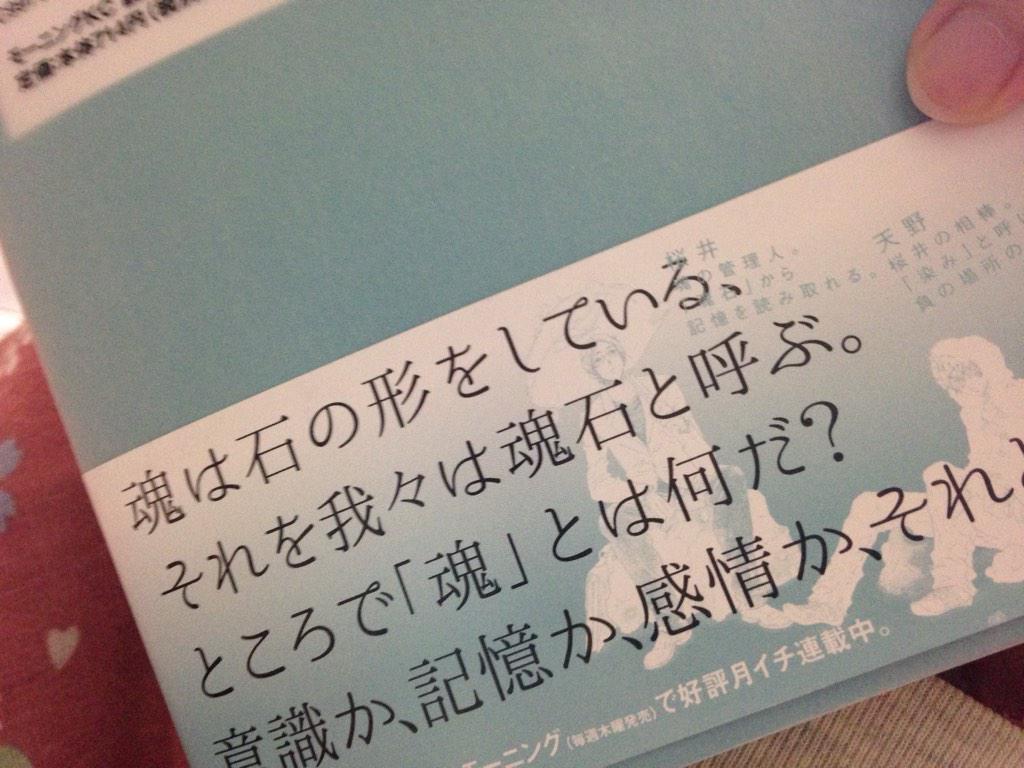 モーニングKC
魂は石の形をしている、
それを我々は魂石と呼ぶ。
ところで「魂」とは何だ？
意識か、記憶か、感情か、それと
桜井
の管理人。
から
記憶を読み取れる。
天野
桜井の相棒。
「染み」と呼
負の場所の
モーニング(毎週木曜発売)で好評月イチ連載中。